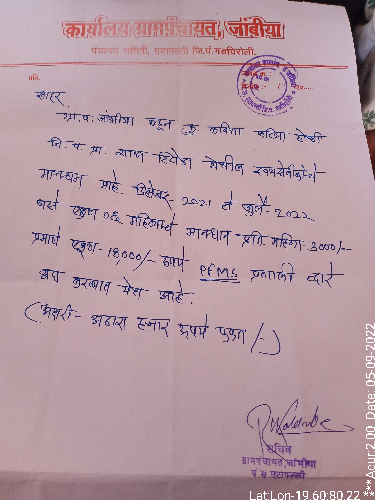 कार्यालय ग्रामपंचायत, जांबीया
पंचायत समिती, एटापल्ली जि.प.गडचिरोली.
प्रति,
सादर
ग्रा.प. जांभीया कडून कु. कविता
जि. प. प्रा. शाळा येथील
मानधन माहे. डिसेंबर 2021 ते जुलै- 2022
असे एकुण 06 महिन्याचे मानधन प्रति महिना 3000/-
प्रमाणे एकूण- 18,000/- रुपये PFMS प्रणाली द्वारे
अदा करण्यात येत आहे.
(अक्षरी- अठरा हजार रुपये फक्त /-)
सचिव
ग्रामपंचायत, जांबीया
पं. स. एटापल्ली
Lat:Lon- 19.60:80.22 ***Acur:2.00 Date: 05-09-2022